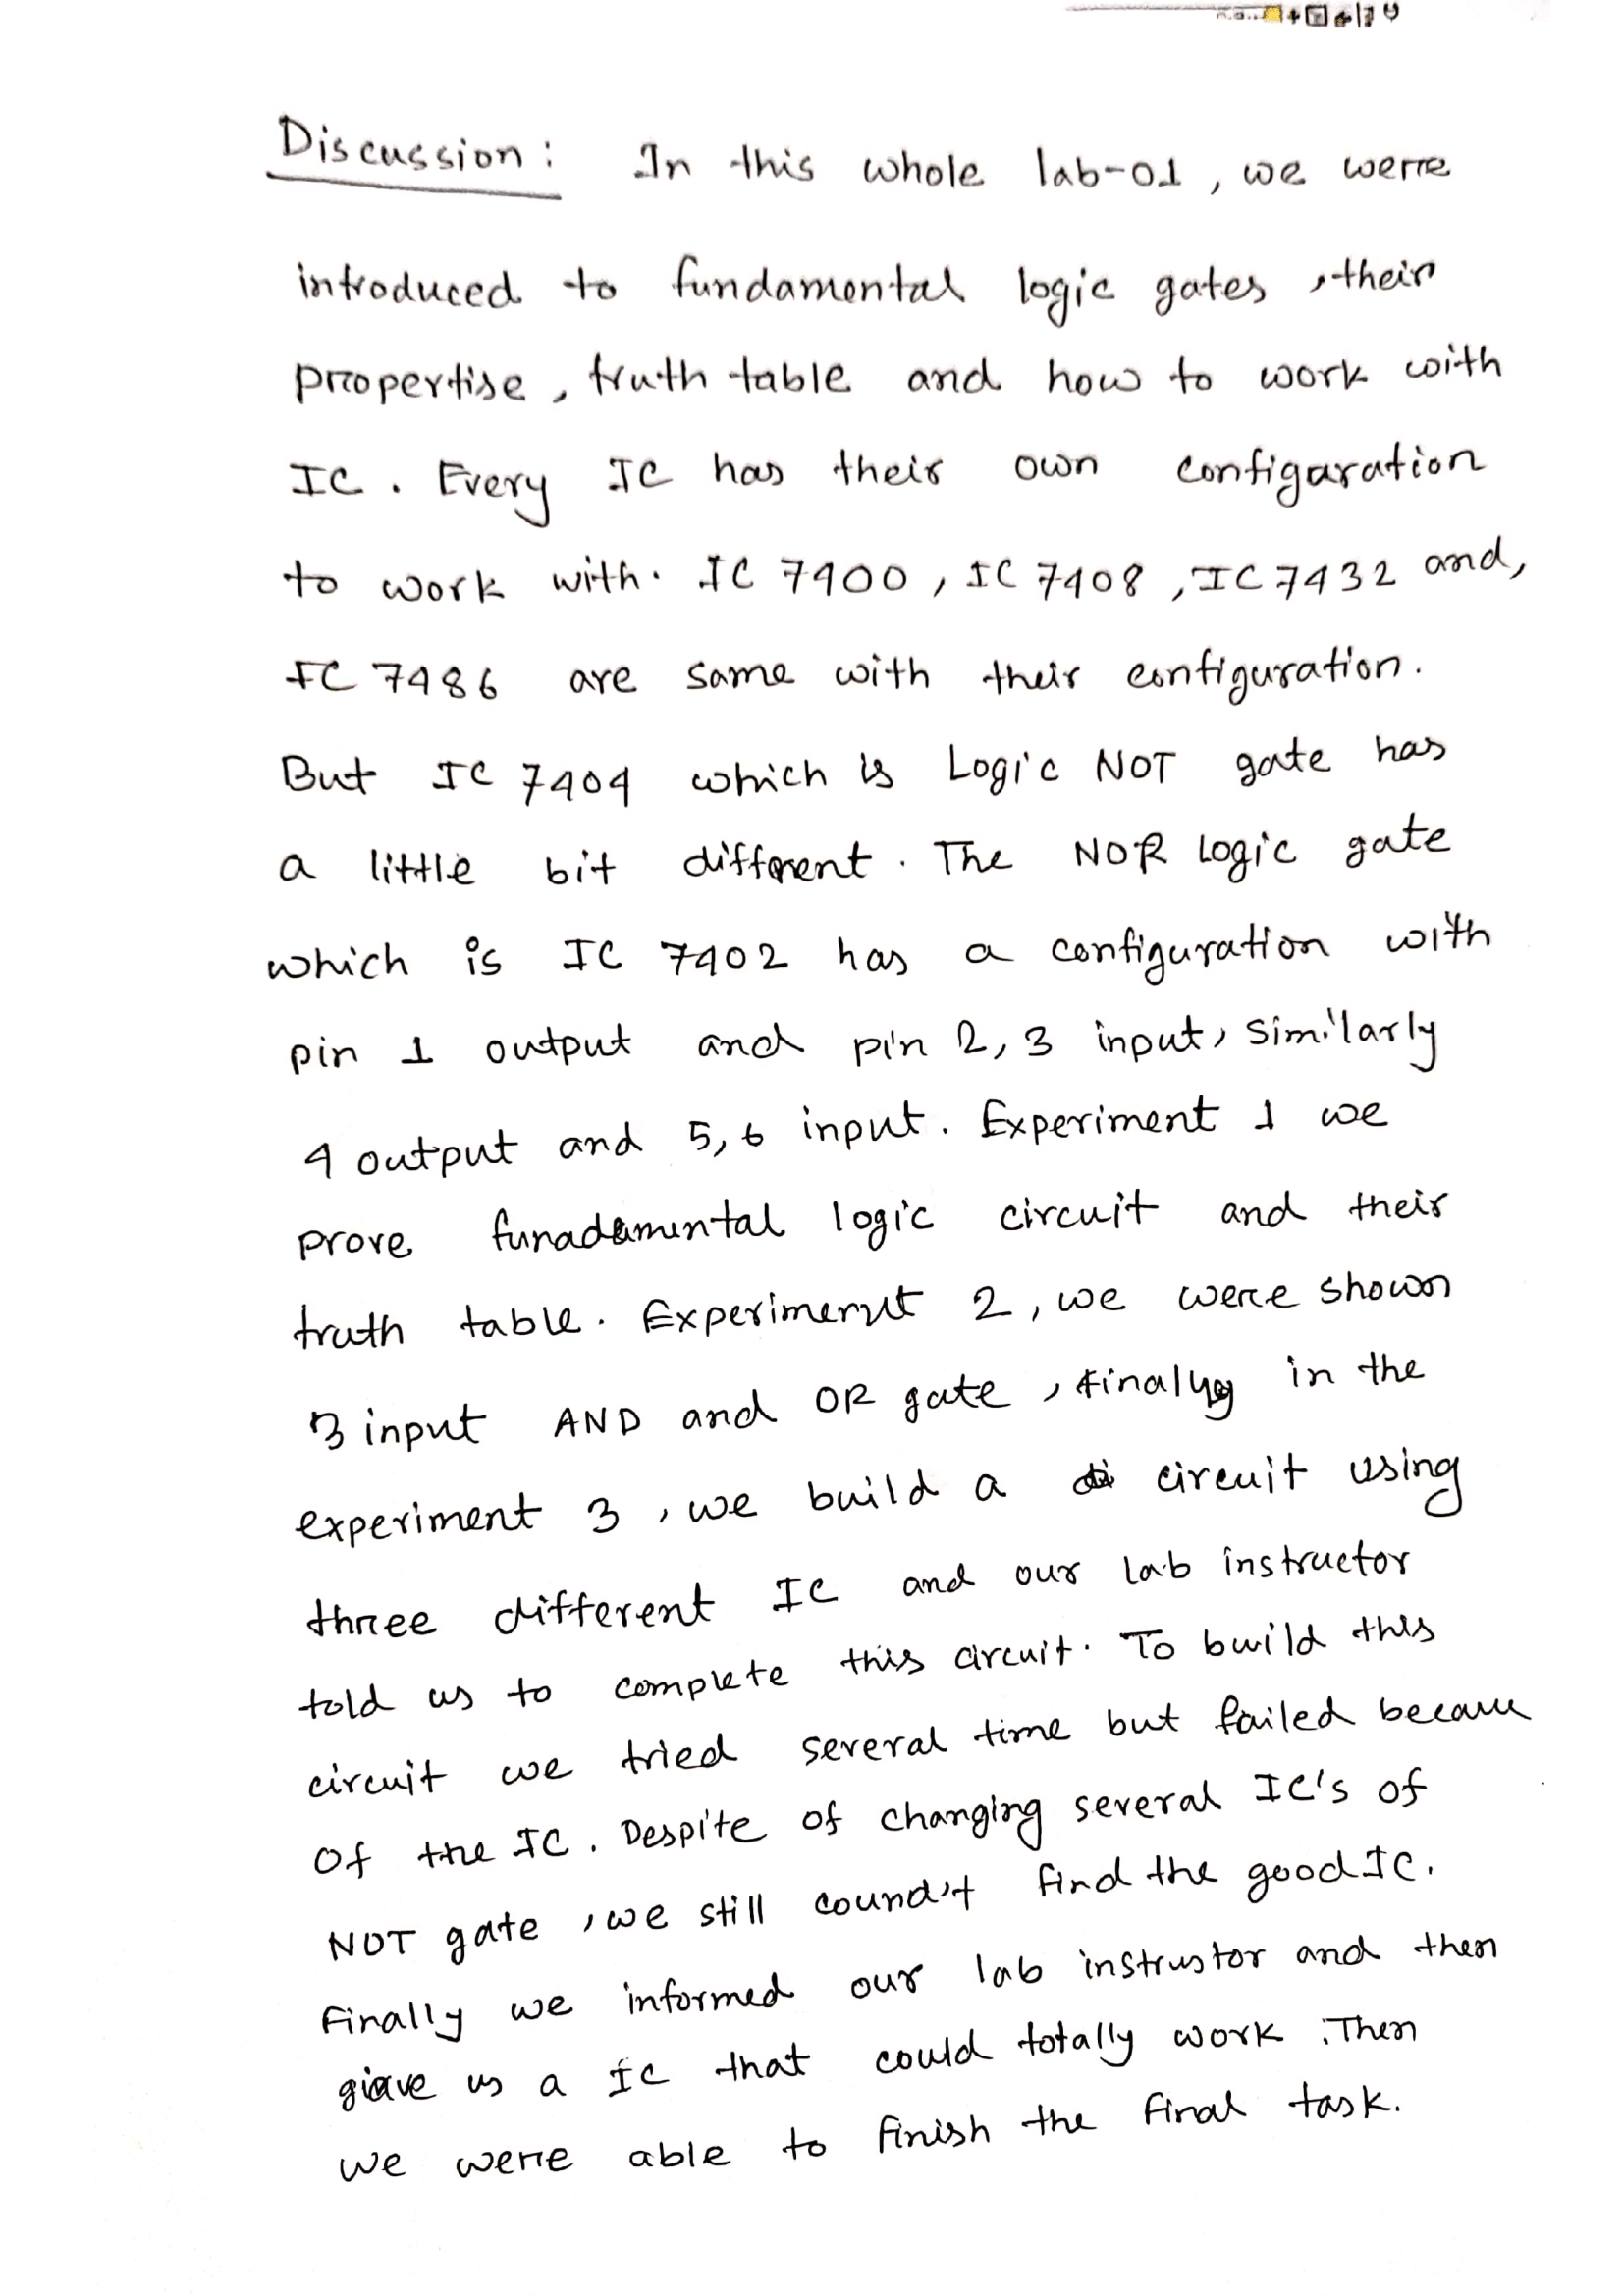 Discussion: In this whole lab-01, we were
introduced to fundamental logic gates, their
propertise, truth table and how to work with
IC. Every IC has their own configaration
to work with. IC 7400, IC 7408, IC 7432 and,
IC 7486 are same with their configuration.
But IC 7404 which is Logic NOT gate has
a little bit different. The NOR Logic gate
which is IC 7402 has a configuration with
pin 1 output and pin 2,3 input, similarly
4 output and 5,6 input. Experiment 1 we
prove funadamental logic circuit and their
truth table. Experiment 2, we were shown
3 input AND and OR gate, finally in the
experiment 3, we build a circuit using
three different IC and our lab instructor
told us to complete this circuit. To build this
circuit we tried several time but failed because
Of the IC. Despite of changing several IC's of
NOT gate, we still cound't find the good IC.
Finally we informed our lab instrustor and then
gave us a IC that could totally work. Then
we were able to finish the final task.